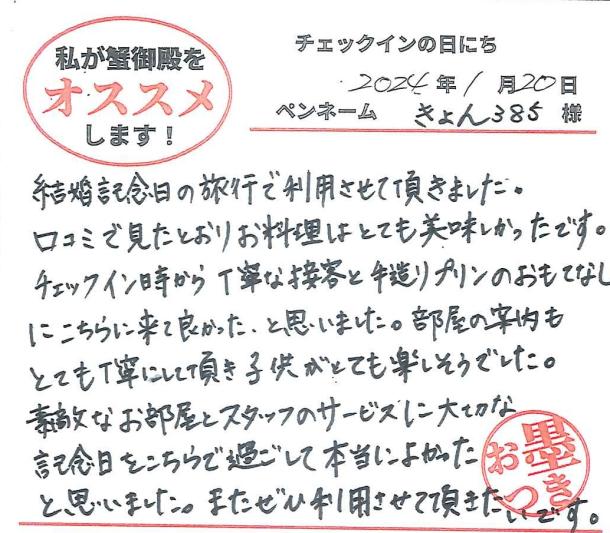 私が蟹御殿を
オススメ
します！
チェックインの日にち
2024年1月20日
ペンネーム きょん385 様
結婚記念日の旅行で利用させて頂きました。
口コミで見たとおりお料理はとても美味しかったです。
チェックイン時から丁寧な接客と手造りプリンのおもてなし
にこちらに来て良かった、と思いました。部屋の案内も
とても丁寧にして頂き子供がとても楽しそうでした。
素敵なお部屋とスタッフのサービスに大切な
記念日をこちらで過ごして本当によかった
と思いました。またぜひ利用させて頂きたいです。
お墨つき